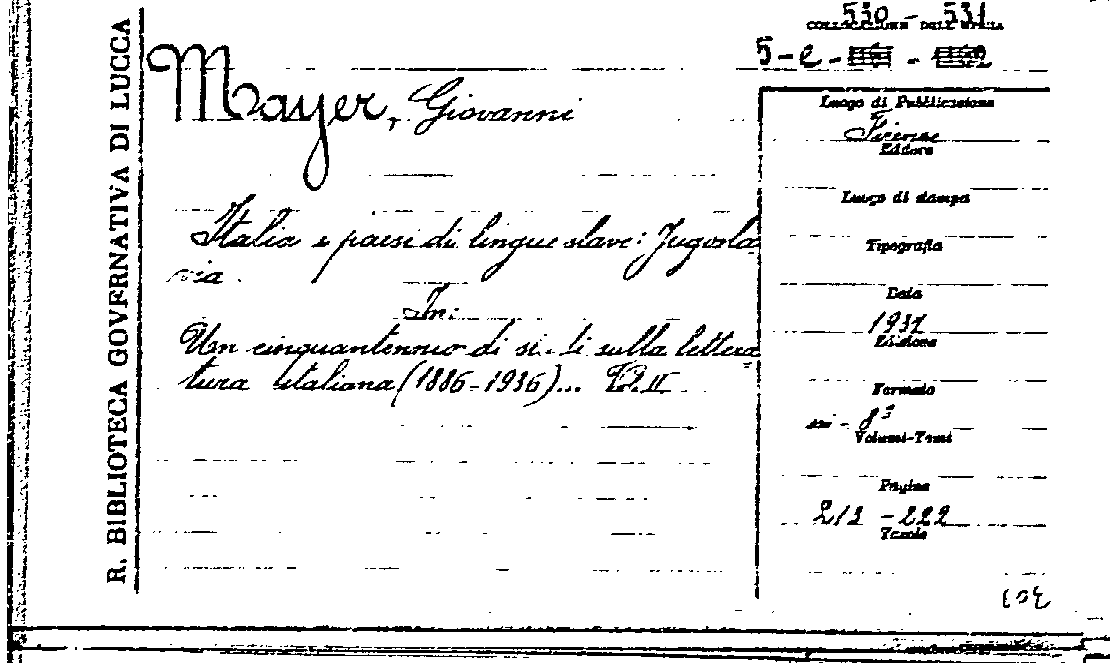 R. BIBLIOTECA GOVERNATIVA DI LUCCA
530 - 531
COLLOCAZIONE DELL'OPERA
5-e-
Mayer, Giovanni
Italia e paesi di lingue slave: Jugosla
via.
In:
Un cinquantennio di studi sulla lettera
tura italiana (1886-1936)... P. II
Luogo di Pubblicazione
Firenze
Editore
Luogo di stampa
Tipografia
Data
1937
Edizione
Formato
in - 8°
Volumi-Tomi
Pagine
213 - 222
Tavole